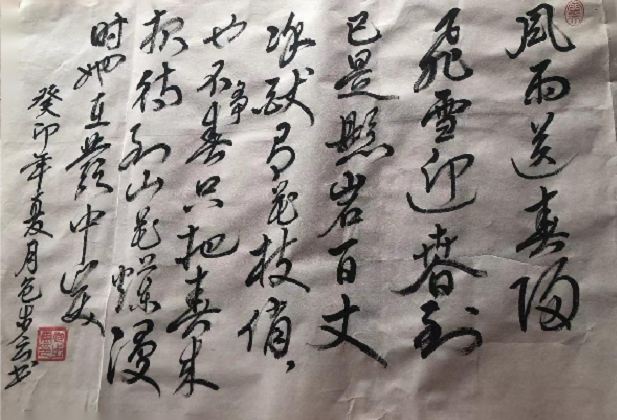 風雨送春归
飛雪迎春到
已是懸岩百丈
冰猷有花枝俏，
也不争春只把春来
报待到山花爛漫
时她在叢中笑
癸卯年夏月